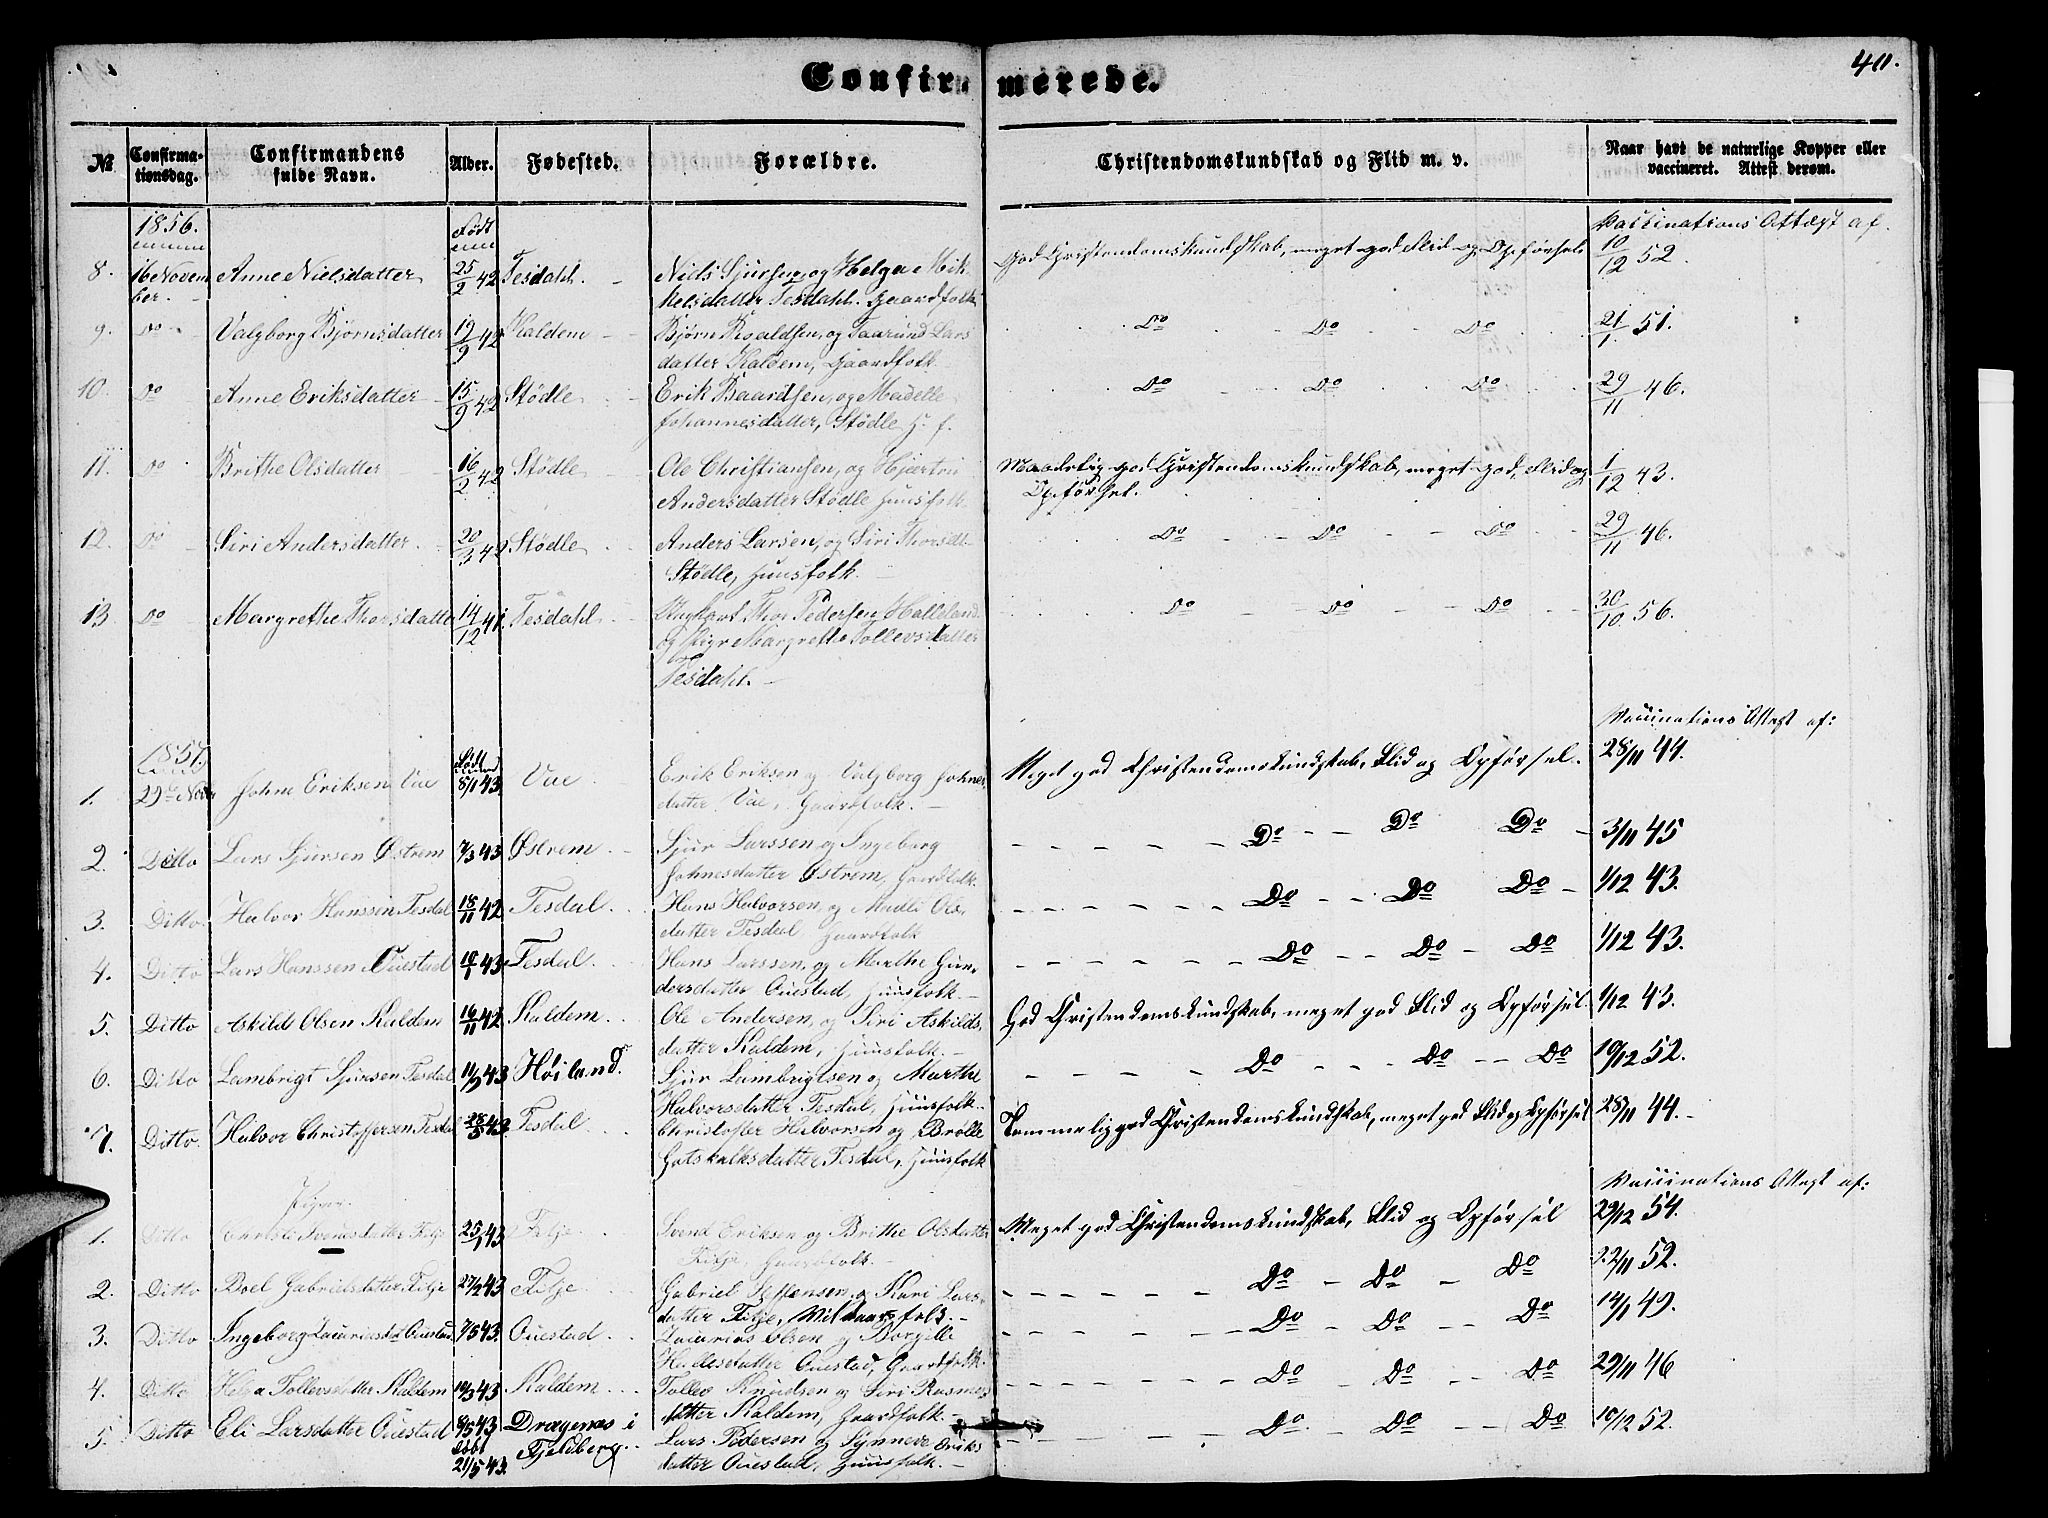 Confirmerede.
40.
№ Confirmationsdag. Confirmandens fulde Navn. Alder. Fødested. Forældre. Christendomskundskab og Flid m. v. Naar havt de naturlige Kopper eller vaccineret. Attest derom.
1856. Født Vaccinations Attest af.
8. 16 Novem Anne Nielsdatter 25/2 42 Tesdahl. Niels Sjursen, og Helga Mik God Christendomskundskab, meget god Flid og Opførsel. 10/12 52.
ber. kelsdatter Tesdahl. Gaardfolk
9. Do Valgborg Bjørnsdatter 19/9 42 Kaldem Bjørn og Lars Do Do Do 21/1 51.
datter Kaldem, Gaardfolk
10. Do Anne Eriksdatter 15/9 42 Stødle Erik Baardsen, og Madelle Do Do Do 29/11 46.
Johannesdatter, Stødle H. f.
11. Do Brithe Olsdatter 16/2 42 Stødle Ole Christiansen, og Maadelig god Christendomskundskab, meget god Flid og 1/12 43.
Andersdatter Stødle Huusfolk Opførsel.
12. Do Siri Andersdatter 20/3 42 Stødle Anders Larsen, og Siri Thorsdt. Do Do Do 29/11 46.
Stødle, Huusfolk.
13. Do Margrethe Thorsdatter 14/12 41. Tesdahl. Ungkarl Thor Pedersen Halleland Do Do Do 30/10 56.
og Pige Margrethe Tollevsdatter
Tesdahl.
1857. Født Vaccinations Attest af:
1. 29de Novbr Johne Eriksen Vae 8/1 43. Vae Erik Eriksen og Valgborg Johnes Meget god Christendomskundskab, Flid og Opførsel. 28/11 44.
datter Vae, Gaardfolk.
2. Ditto Lars Sjursen Østrem 7/3 43 Østrem Sjur Larssen og Ingeborg Do Do Do 3/11 45
Johnesdatter Østrem, Gaardfolk.
3. Ditto Halvor Hanssen Tesdal 18/11 42 Tesdal. Hans Halvorsen, og Madli Ols Do Do Do 1/12 43.
datter Tesdal Gaardfolk
4. Ditto Lars Hanssen Ouestad 10/1 43 Tesdal. Hans Larssen, og Marthe Gun Do Do Do 1/12 43.
dersdatter Ouestad, Huusfolk.
5. Ditto Askild Olsen Kaldem 16/11 42 Kaldem Ole Andersen, og Siri Askilds God Christendomskundskab, meget god Flid og Opførsel. 1/12 43.
datter Kaldem, Huusfolk.
6. Ditto Lambrigt Sjursen Tesdal 11/9 43 Høiland. Sjur Lambrigtsen og Marthe Do Do Do 10/12 52.
Halvorsdatter Tesdal, Huusfolk.
7. Ditto. Halvor Christoffersen Tesdal 28/8 43 Tesdal Christoffer Halvorsen og Brølle Temmelig god Christendomskundskab, meget god Flid og Opførsel 28/11 44.
Gotskalksdatter Tesdal, Huusfolk
Piger. Vaccinations Attest af:
1. Ditto Svensdatter Fitje 25/1 43 Fitje Svend Eriksen og Brithe Olsdatter Meget god Christendomskundskab, Flid og Opførsel 29/12 54.
Fitje, Gaardfolk.
2. Ditto Boel Gabrielsdatter Fitje 27/2 43 Fitje Gabriel Steffensen og Kari Lars Do Do Do 22/11 52.
datter Fitje, folk.
3. Ditto Ingeborg Zacariasdt. Ouestad 7/5 43. Ouestad Zacarias Olsen og Borgille Do Do Do 14/1 49.
datter Ouestad, Gaardfolk.
4. Ditto Helga Tollevsdatter Kaldem 10/3 43 Kaldem Tollev Knudsen og Siri Rasmus Do Do Do 29/11 46
datter Kaldem, Gaardfolk.
5. Ditto Eli Larsdatter Ouestad 8/5 43 Dragenæs i Lars Pedersen og Synneve Eriks Do Do Do 10/12 52.
Døbt 21/5 43. Fjeldberg datter Ouestad, Huusfolk.